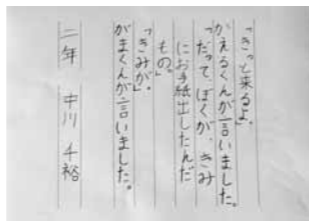 「きっと来るよ。」
かえるくんが言いました。
「だって、ぼくが、きみ
にお手紙出したんだ
もの。」
「きみが。」
がまくんが言いました。
二年 中川 千裕